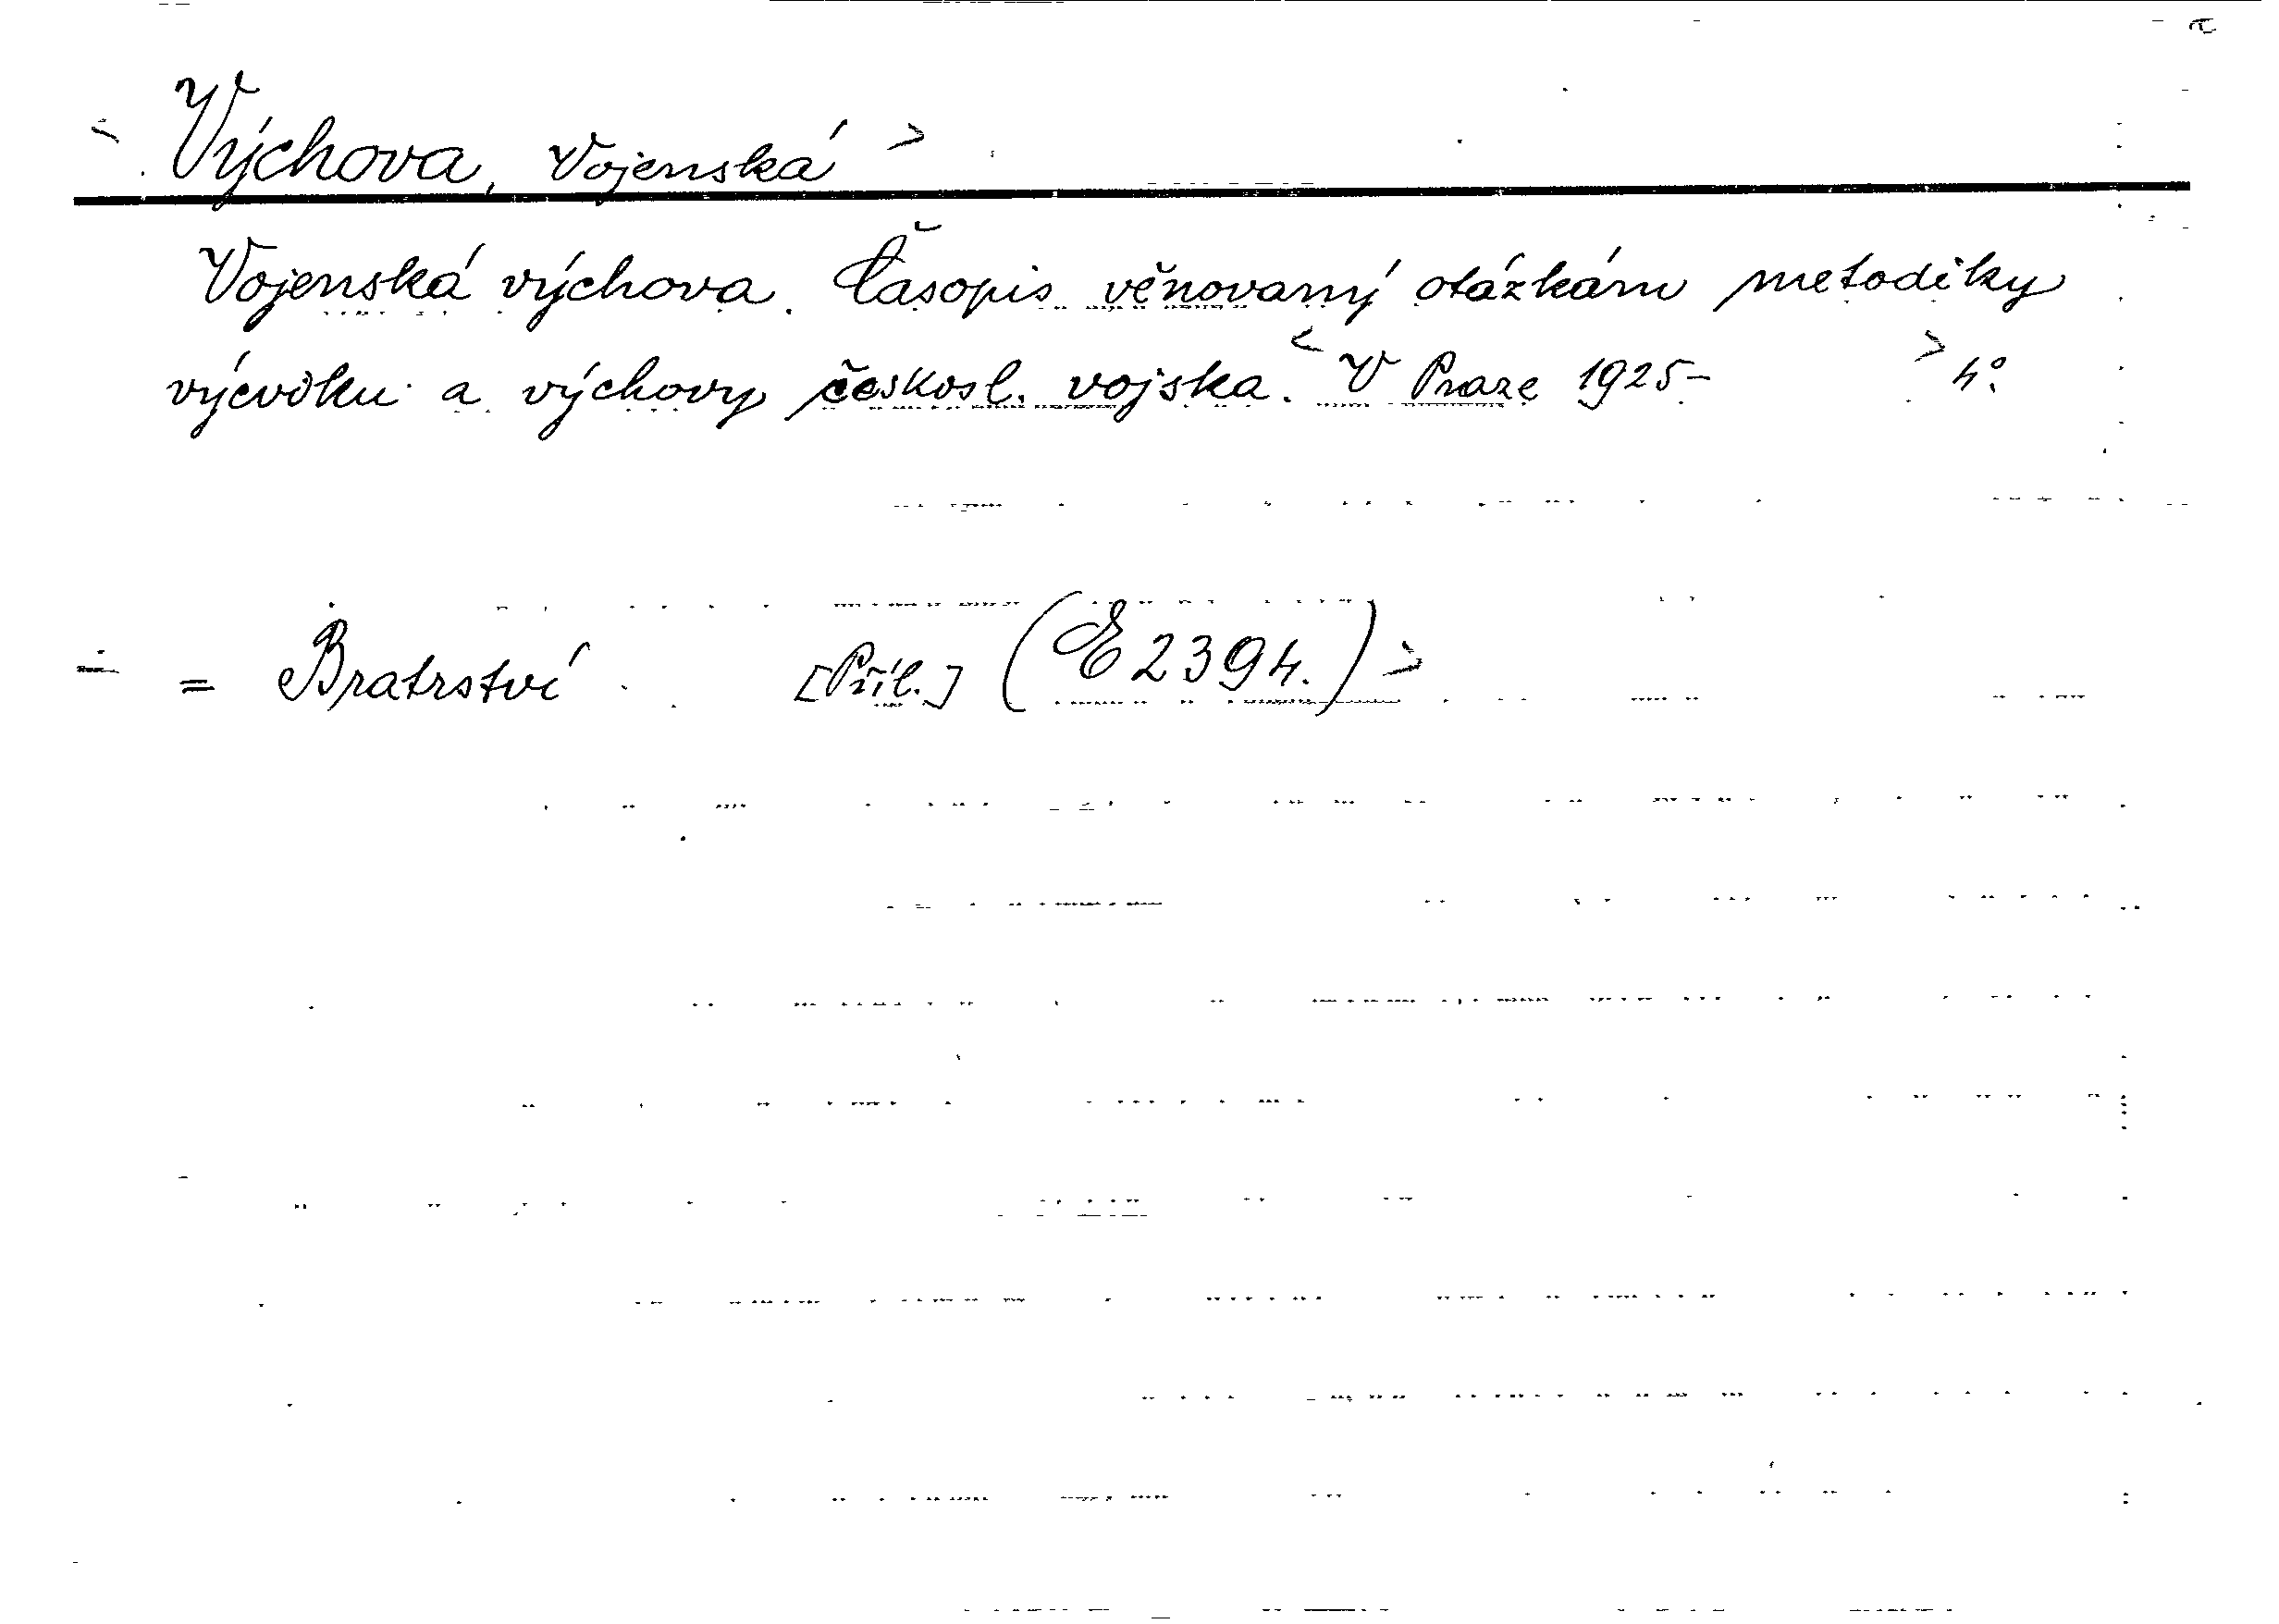 < Výchova, Vojenská >
Vojenská výchova. Časopis věnovaný otázkám metodiky
výcviku a výchovy českosl. vojska. < V Praze 1925- > 4°.
= Bratrství [Příl.] (E 2394.) >